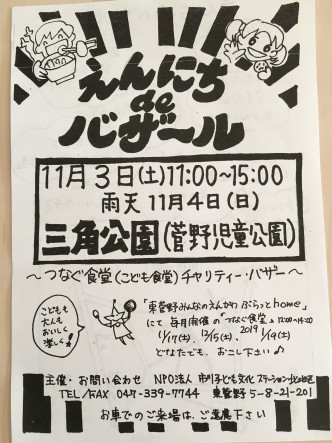 えんにち
de
バザール
11月3日(土)11:00~15:00
雨天 11月4日(日)
三角公園(菅野児童公園)
~つなぐ食堂(こども食堂)チャリティーバザー~
こどもも
大人も
おいしく
楽しく!
「東菅野みんなのえんがわ ぷらっとhome」
にて 毎月開催の「つなぐ食堂」12:00~14:00
11/17(土)、12/15(土)、2019 1/19(土)
どなたでも、お越し下さい♪
主催・お問い合わせ NPO法人 市川子ども文化ステーション
TEL/FAX 047-339-7744 東菅野5-8-21-201
お車でのご来場は、ご遠慮下さい